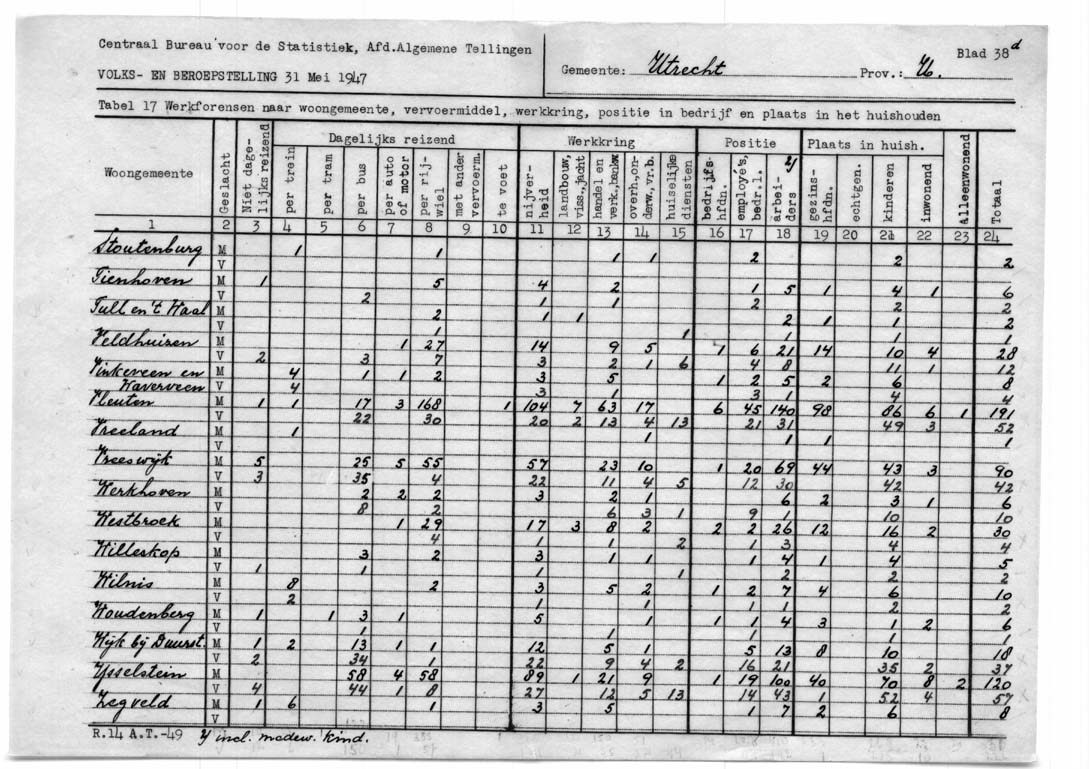 Centraal Bureau voor de Statistiek, Afd.Algemene Tellingen
VOLKS- EN BEROEPSTELLING 31 Mei 1947
Gemeente: Utrecht Prov.: U. Blad 38d
Tabel 17 Werkforensen naar woongemeente, vervoermiddel, werkkring, positie in bedrijf en plaats in het huishouden
Dagelijks reizend Werkkring Positie Plaats in huish.
Woongemeente Geslacht Niet dage-lijks reizend per trein per tram per bus per auto of motor per rij-wiel met ander vervoerm. te voet nijver-heid landbouw, viss.,jacht handel en verk.,bankw. overh.,on-derw,vr.b. huiselijke diensten bedrijfs-hfdn. employé's, bedr.l. arbei-ders 2) gezins-hfdn. echtgen. kinderen inwonend Alleenwonend Totaal
1 2 3 4 5 6 7 8 9 10 11 12 13 14 15 16 17 18 19 20 21 22 23 24
Stoutenburg M 1 1 1 1 2 2 2
V
Tienhoven M 1 5 4 2 1 5 1 4 1 6
V 2 1 1 2 2 2
Tull en 't Waal M 2 1 1 2 1 1 2
V 1 1 1 1 1
Veldhuizen M 1 27 14 9 5 1 6 21 14 10 4 28
V 2 3 7 3 2 1 6 4 8 11 1 12
Vinkeveen en M 4 1 1 2 3 5 1 2 5 2 6 8
Waverveen V 4 3 1 3 1 4 4
Vleuten M 1 1 17 3 168 1 104 7 63 17 6 45 140 98 86 6 1 191
V 22 30 20 2 13 4 13 21 31 49 3 52
Vreeland M 1 1 1 1 1
V
Vreeswijk M 5 25 5 55 57 23 10 1 20 69 44 43 3 90
V 3 35 4 22 11 4 5 12 30 42 42
Werkhoven M 2 2 2 3 2 1 6 2 3 1 6
V 8 2 6 3 1 9 1 10 10
Westbroek M 1 29 17 3 8 2 2 2 26 12 16 2 30
V 4 1 1 2 1 3 4 4
Willeskop M 3 2 3 1 1 1 4 1 4 5
V 1 1 1 1 2 2 2
Wilnis M 8 2 3 5 2 1 2 7 4 6 10
V 2 1 1 1 1 2 2
Woudenberg M 1 1 3 1 5 1 1 1 4 3 1 2 6
V 1 1 1 1 1
Wijk bij Duurst. M 1 2 13 1 1 12 5 1 5 13 8 10 18
V 2 34 1 22 9 4 2 16 21 35 2 37
IJsselstein M 58 4 58 89 1 21 9 1 19 100 40 70 8 2 120
V 4 44 1 8 27 12 5 13 14 43 1 52 4 57
Zegveld M 1 6 1 3 5 1 7 2 6 8
V
R.14 A.T.-49 2) incl. medew. kind.